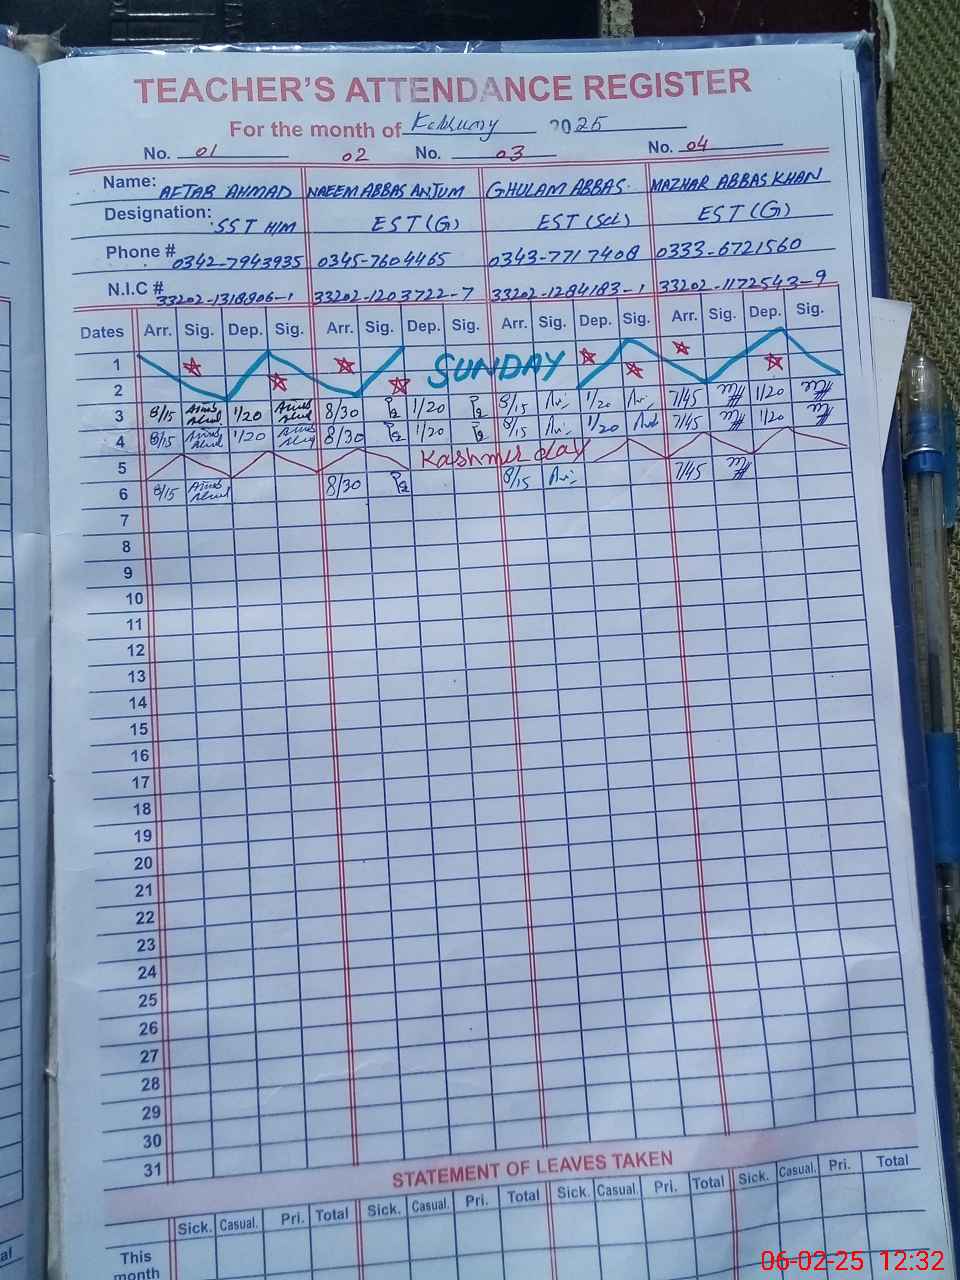 TEACHER'S ATTENDANCE REGISTER
For the month of February 2025
No. 01 02 No. 03 No. 04
Name: AFTAB AHMAD NAEEM ABBAS ANJUM GHULAM ABBAS. MAZHAR ABBAS KHAN
Designation: SST H/M EST (G) EST (Sci) EST (G)
Phone # 0342-7943935 0345-7604465 0343-7717408 0333-6721560
N.I.C # 33202-1318906-1 33202-1203722-7 33202-1284183-1 33202-1172543-9
Dates Arr. Sig. Dep. Sig. Arr. Sig. Dep. Sig. Arr. Sig. Dep. Sig. Arr. Sig. Dep. Sig.
1 SUNDAY
2
3 8/15 1/20 8/30 1/20 8/15 1/20 7/45 1/20
4 8/15 1/20 8/30 1/20 8/15 1/20 7/45 1/20
5 Kashmir day
6 8/15 8/30 8/15 7/45
7
8
9
10
11
12
13
14
15
16
17
18
19
20
21
22
23
24
25
26
27
28
29
30
31
STATEMENT OF LEAVES TAKEN
Sick. Casual. Pri. Total Sick. Casual. Pri. Total Sick. Casual. Pri. Total Sick. Casual. Pri. Total
This
month
06-02-25 12:32